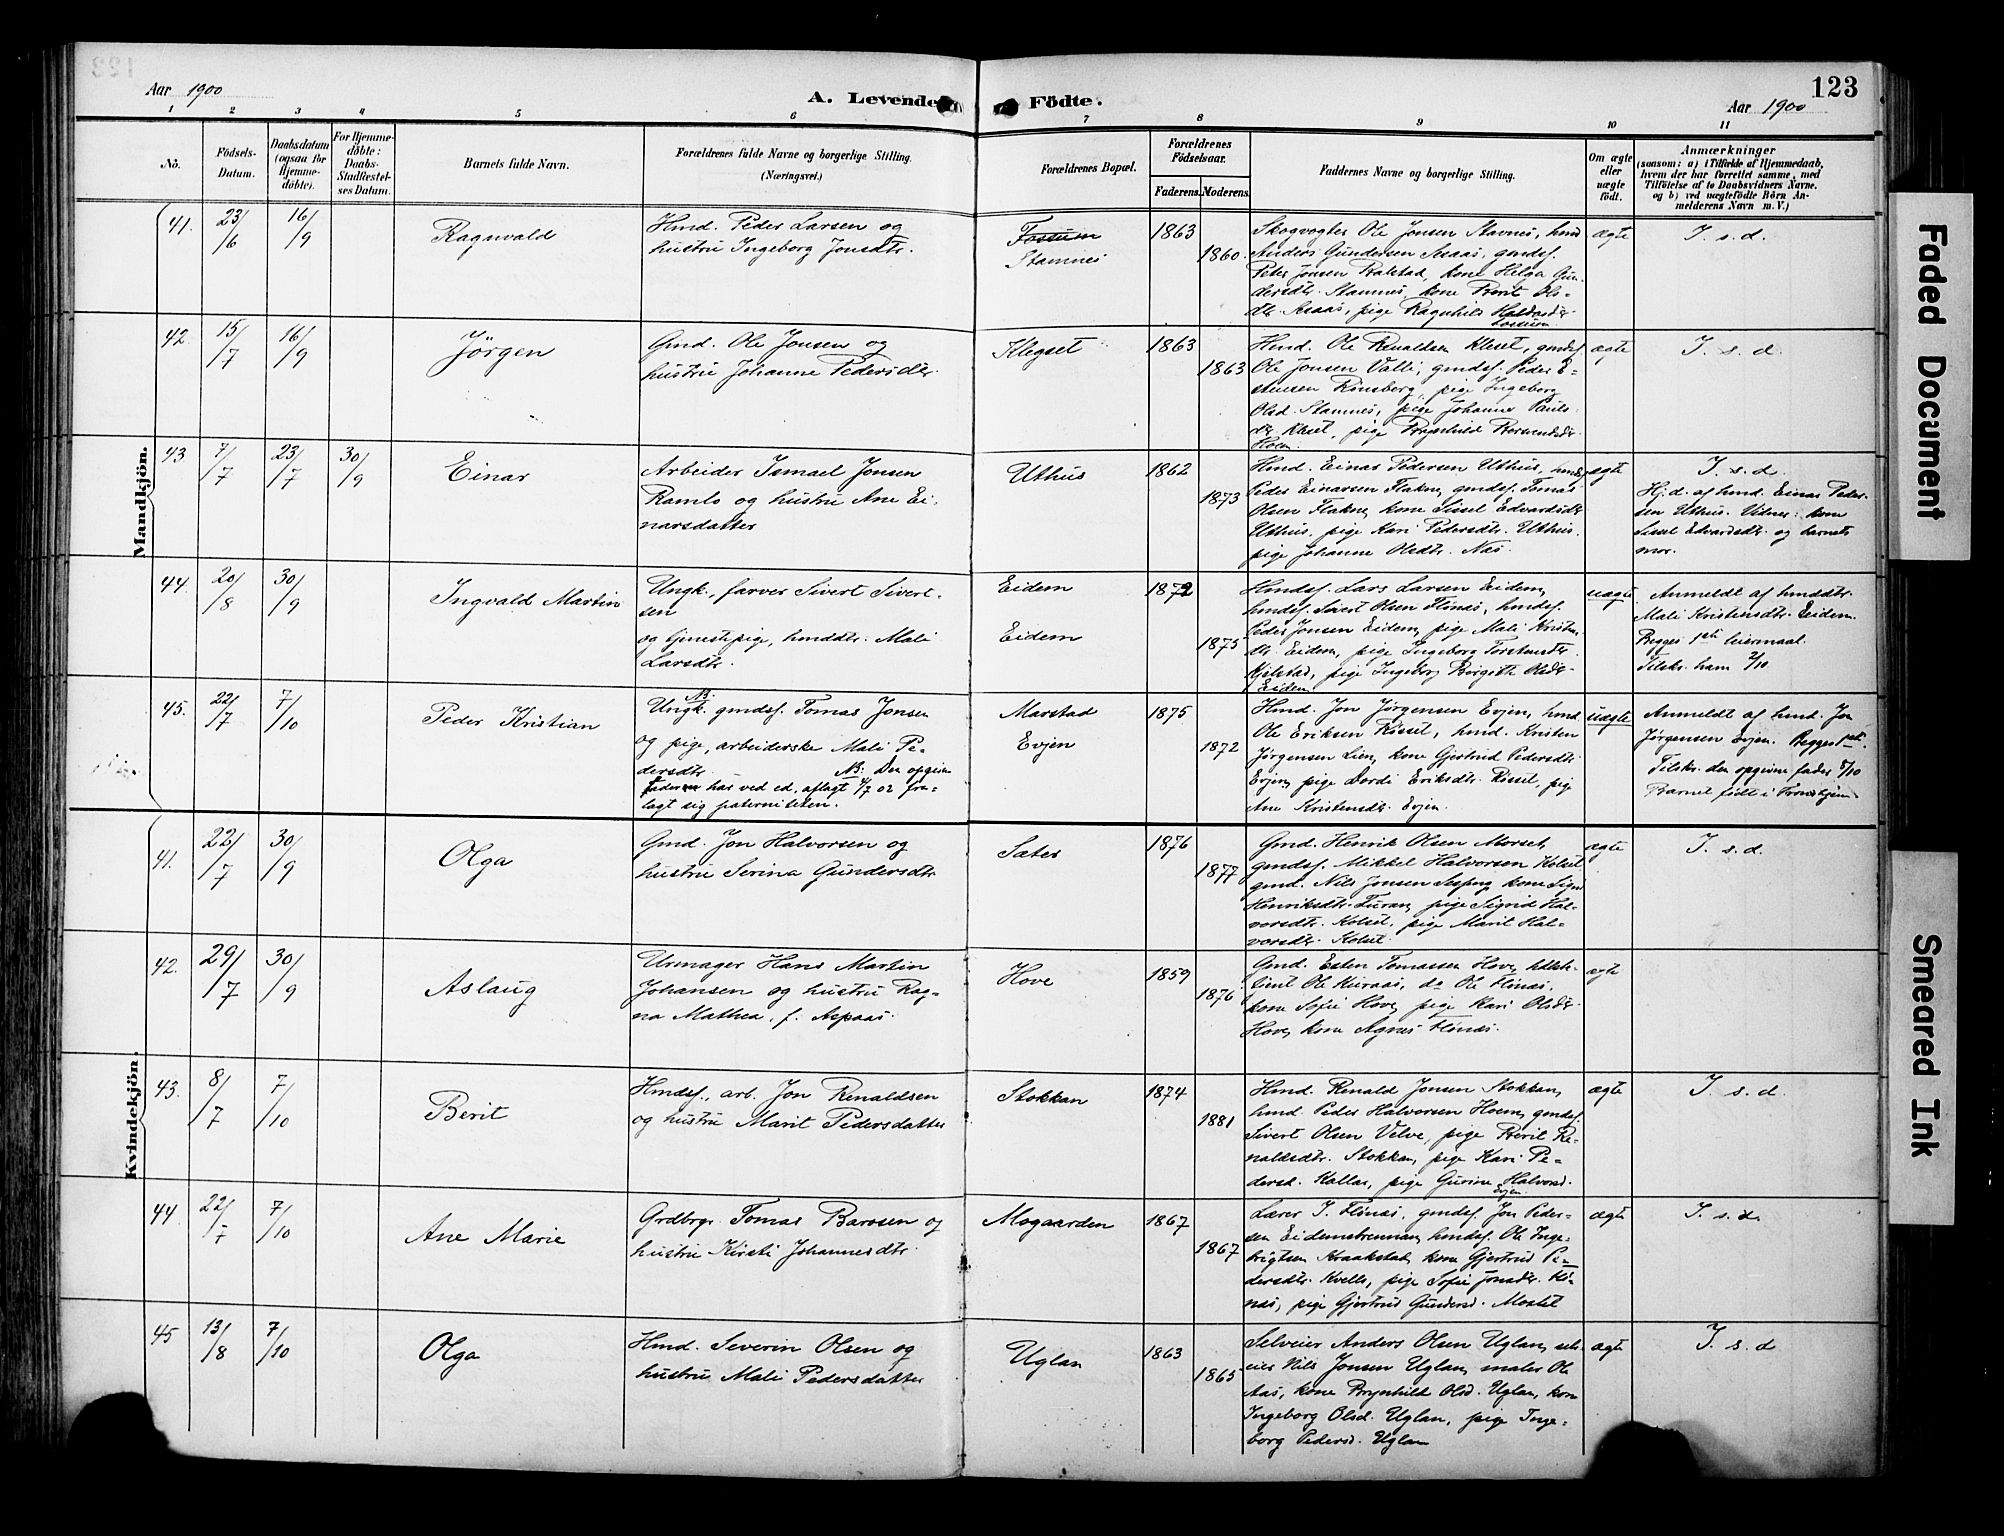 123
Aar 1900
A. Levende Födte.
Aar 1900
1 2 3 4 5 6 7 8 9 10 11
No.
Födsels-Datum.
Daabsdatum (ogsaa for Hjemme-döbte).
For Hjemme-döbte: Daabs-Stadfæstel-ses Datum.
Barnets fulde Navn.
Forældrenes fulde Navne og borgerlige Stilling.
(Næringsvei.)
Forældrenes Bopæl.
Forældrenes Födselsaar.
Faderens. Moderens.
Faddernes Navne og borgerlige Stilling.
Om ægte eller uægte födt.
Anmærkninger
(saasom: a) i Tilfælde af Hjemmedaab,
hvem der har forrettet samme, med
Tilföielse af to Daabsvidners Navne.
og b) ved uægtefödte Börn An-
melderens Navn m. V.)
Mandkjön.
41. 23/6 16/9
Ragnvald
Hmd. Peder Larsen og
hustru Ingeborg Jonsdtr.
Fossum
Stamnes
1863
1860.
Skogvogter Ole Jonsen Stavnes, hmd
Anders Gundersen Asaas, gmdsf.
Peder Jonsen Balstad, kone Helga Gun-
dersdtr. Stamnes, kone Berit Ols-
dtr. Aasaas, pige Ragnhild Haldosdr
Fossum
ægte
I. s. d.
42 15/7 16/9
Jörgen
Gmd. Ole Jonsen og
hustru Johanne Pedersdtr.
Klegset
1863
1863
Hmd. Ole Renaldsen Kleset, gmdsf
Ole Jonsen Valli, gmdsf. Peder E-
stensen Rinsberg, pige Ingeborg
Olsd. Stamnes, pige Johanna Pauls-
dtr. Kleset, pige Brynhild
Hoem.
ægte
I. s. d.
43 7/7 23/7 30/9
Einar
Arbeider Ismael Jonsen
Ramlo og hustru Ane Ei-
narsdatter
Uthus
1862
1873
Hmd. Einar Pedersen Uthus, hmdsf
Peder Einarsen Flakne, gmdsf. Tomas
Olsen Flakne, kone Sissel Edvardsdtr
Uthus, pige Kari Pedersdtr. Uthus.
pige Johanne Olsdtr. Næs.
ægte
I. s. d.
Hj.d. af hmd. Einar Peder-
sen Uthus. Vidner: kone
Sissel Edvardsdtr. og barnets
mor.
44. 20/8 30/9
Ingvald Martin
Ungk., farver Sivert Sivert-
sen
og tjenestepige, hmddtr. Mali
Larsdtr.
Eidem
Eidem
1872
1875
Hmdsf. Lars Larsen Eidem,
hmdsf. Sivert Olsen Flönæs, hmdsf.
Peder Jonsen Eidem, pige Mali Kristens-
dtr. Eidem, pige Ingeborg Torstensdtr
Kjelstad, pige Ingeborg Birgitte Olsdtr
Eidem
uægte.
Anmeldt af hmddtr.
Mali Kristensdtr. Eidem.
Begges 1ste leiermaal.
Tilskr. ham 2/10
45. 22/7 7/10
Peder Kristian
NB.
Ungk. gmdsf. Tomas Jonsen
og pige, arbeiderske Mali Pe-
dersdtr. NB: Den opgivne
fader har ved ed, aflagt 4/7 02 fra-
lagt sig paterniteten.
Marstad
Evjen
1875
1872
Hmd. Jon Jörgensen Evjen, hmd.
Ole Eriksen Rissel, hmd. Kristen
Jörgensen Lien, kone Gjertrud Pedersdtr.
Evjen, pige Dordi Eriksdtr. Rissel, pige
Ane Kristensdtr. Evjen.
uægte
Anmeldt af hmd. Jon
Jörgensen Evjen. Begges 1ste.
Tilskr. den opgivne fader 5/10
Barnet födt i Trondhjem
Kvindekjön.
41. 22/7 30/9
Olga
Gmd. Jon Halvorsen og
hustru Serina Gundersdtr
Sæter
1876
1877
Gmd. Henrik Olsen Morset,
gmdsf. Mikkel Halvorsen Kolset
gmd. Nils Jonsen Sesseng kone Sigri
Henriksdtr. Turan, pige Sigrid Hal-
vorsdtr. Kolset, pige Marit Hal-
vorsdtr. Kolset.
ægte
I. s. d.
42. 29/7 30/9
Aslaug
Urmager Hans Martin
Johansen og hustru Rag-
na Mathea, f. Aspaas.
Hove
1859
1876
Gmd. Esten Tomassen Hove,
Ole Kuraas, do Ole Flönæs,
kone Sofie Hove, pige Kari Olsdtr
Hove, kone Agnes Flönæs.
ægte
43. 8/7 7/10
Berit
Hmdsf., arb. Jon Renaldsen
og hustru Marit Pedersdatter
Stokkan
1874
1881
Hmd. Renald Jonsen Stokkan,
hmd. Peder Halvorsen Hoem, gmdsf.
Sivert Olsen Velve, pige Berit Re-
naldsdtr. Stokkan, pige Kari Pe-
dersd. Kallar, pige Gurine Halvorsd.
Evjen.
ægte
I. s. d.
44 22/7 7/10
Ane Marie
Grdbrgr. Tomas Barosen og
hustru Kirsti Johannesdtr.
Mogaarden
1867
1867
Lærer J. Flönæs, gmdsf. Jon Peder-
sen Eidemsbrennan, hmdsf. Ole Inge-
brigtsen Kraakstad, kone Gjertrud Pe-
dersdtr. Kvello, pige Sofie Jonsdtr. Flö-
næs, pige Gjertrud Gundersd. Mostet
ægte
I. s. d.
45 13/8 7/10
Olga
Hmd. Severin Olsen og
hustru Mali Pedersdatter
Uglan
1863
1865
Selveier Anders Olsen Uglan, selv-
eier Nils Jonsen Uglan, maler Ole
Aas, kone Brynhild Olsd. Uglan, kone
Ingeborg Olsd. Uglan, pige Inge-
borg Pedersd. Uglan
ægte
I. s. d
Faded Document
Smeared Ink